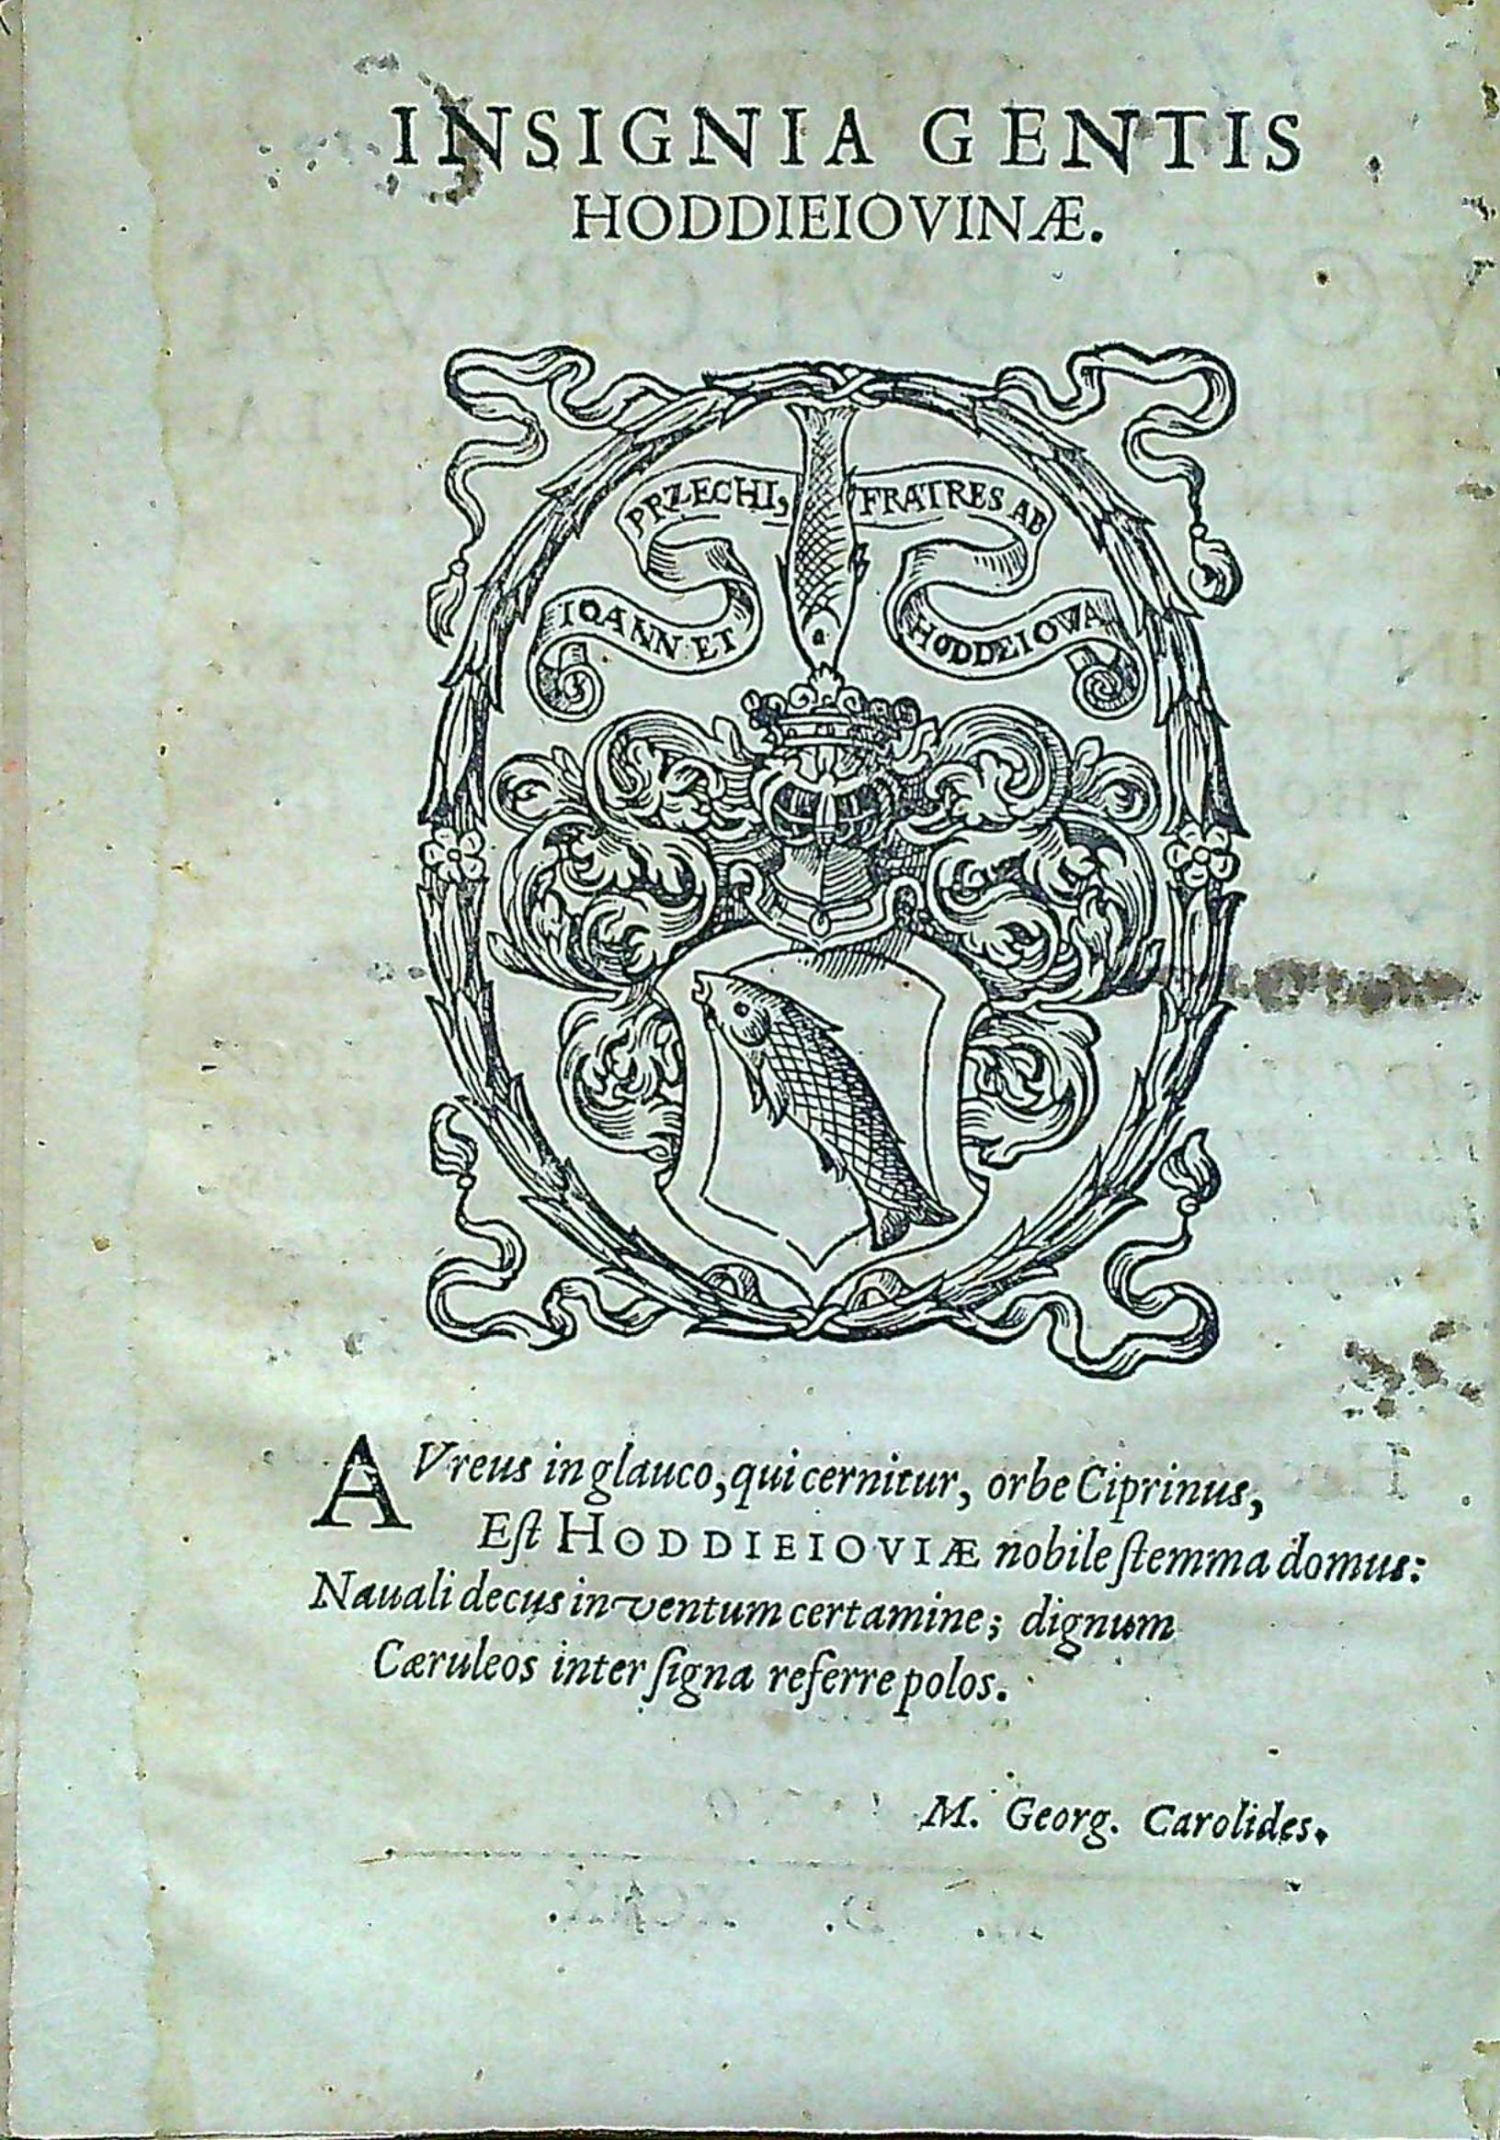 INSIGNIA GENTIS
HODDIEIOVINÆ.
IOANN: ET PRZECHI, FRATRES AB HODDEIOWA
AVreus in glauco, qui cernitur, orbe Ciprinus,
Eſt HODDIEIOVIÆ nobile ſtemma domus:
Nauali decus inventum certamine; dignum
Cæruleos inter ſigna referre polos.
M. Georg. Carolides.